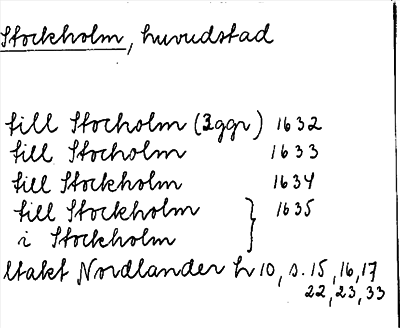 Stockholm, huvudstad
till Stocholm (3ggr) 1632
till Stocholm 1633
till Stockholm 1634
till Stockholm } 1635
i Stockholm
ltakt Nordlander h 10, s. 15, 16, 17
22, 23, 33